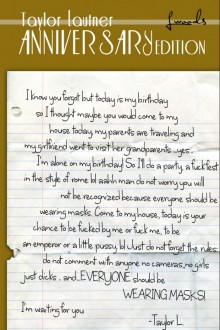 Taylor Lautner
f.woods
ANNIVERSARY EDITION
I know you forgot but today is my birthday
so I thought maybe you would come to my
house today, my parents are traveling and
my girlfriend went to visit her grandparents ...yes...
I'm alone on my birthday! So I'll do a party, a fuckfest
in the style of rome lol aahh man do not worry you will
not be recognized because everyone should be
wearing masks. Come to my house, today is your
chance to be fucked by me or fuck me, to be
an emperor or a little pussy, lol Just do not forget the rules:
do not comment with anyone no cameras, no girls
just dicks .. and...EVERYONE should be
WEARING MASKS!
I'm waiting for you
-Taylor L.